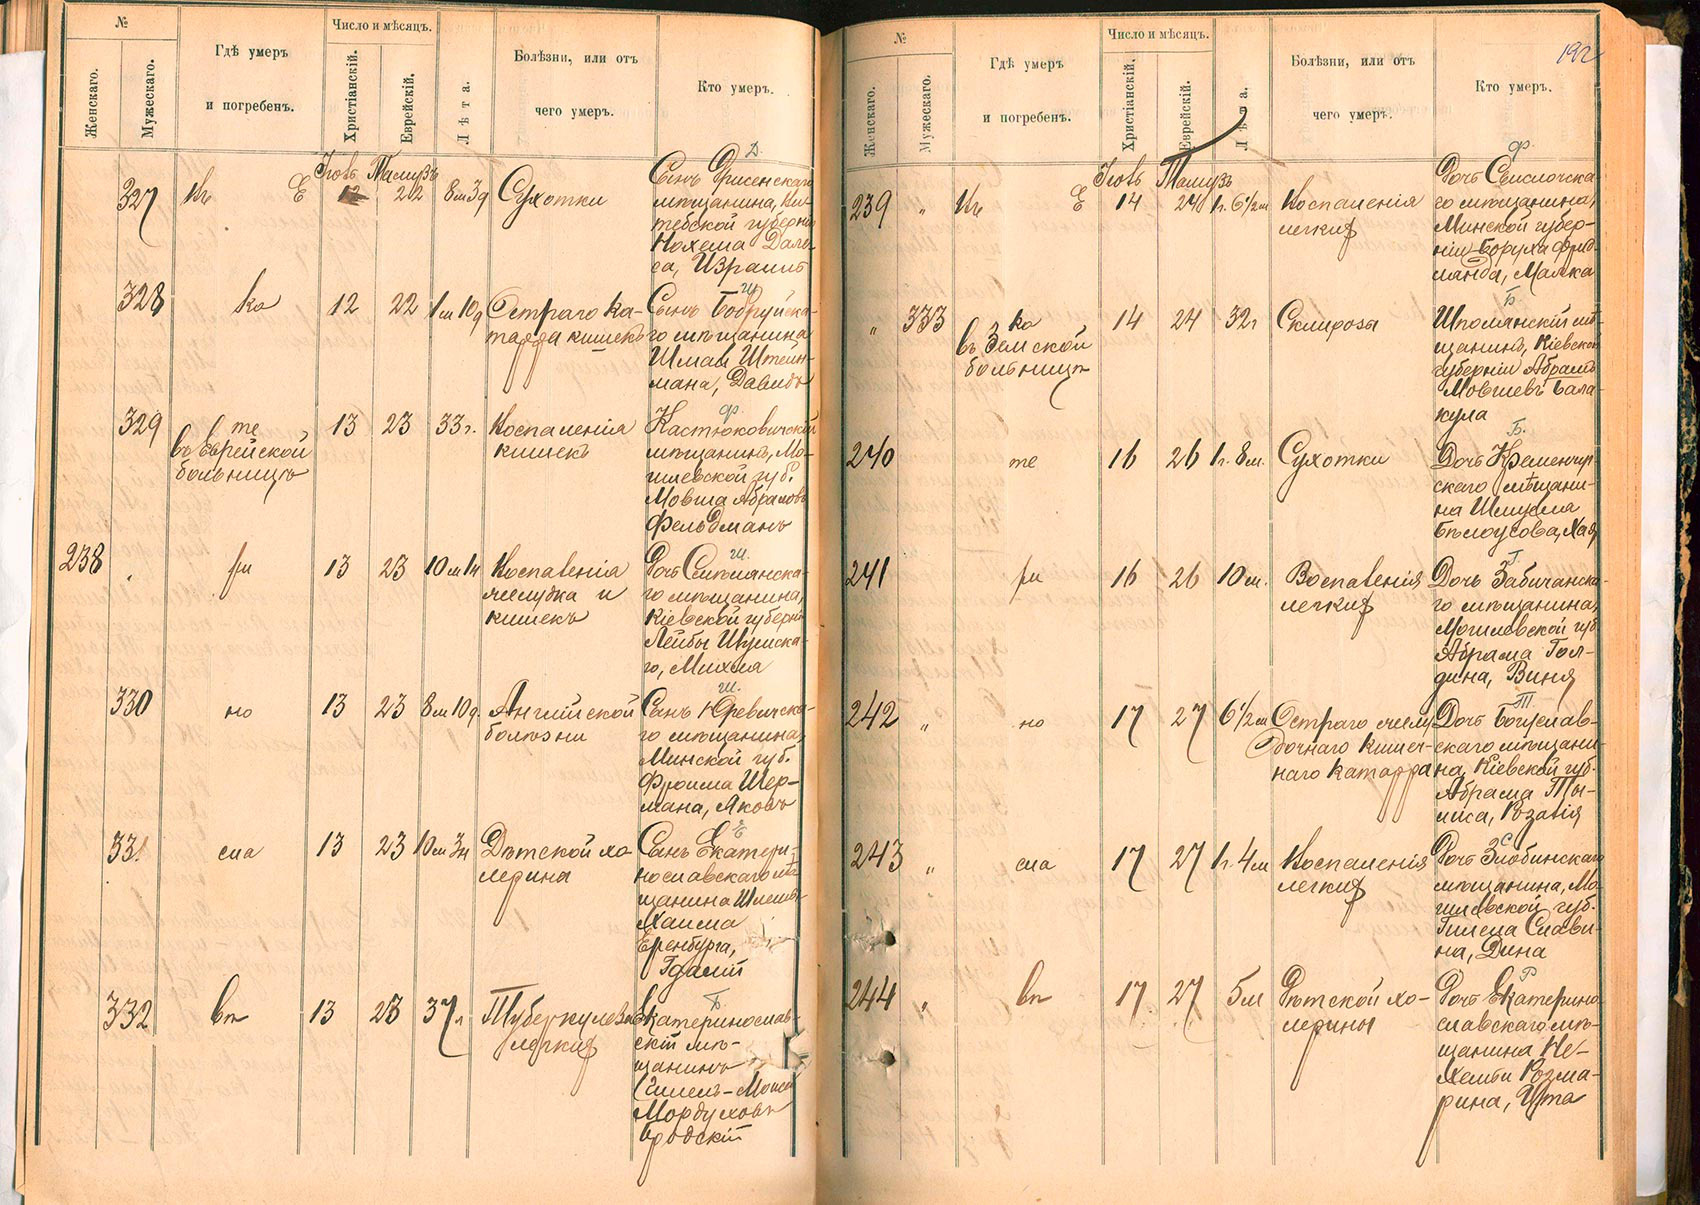 №
Женскаго.
Мужескаго.
Гдѣ умеръ
и погребенъ.
Число и мѣсяцъ.
Христіанскій.
Еврейскій.
Лѣта.
Болѣзни, или отъ
чего умеръ.
Кто умеръ.
Д.
327
Е
Тамузъ
12
22
8м 3д
Сухотки
Сынъ Дрисенскаго
мѣщанина, Ви-
тебской губерніи
Нохема
Израиль
328
ка
12
22
1м 10д
Остраго ка-
тарра кишекъ
Ш
Сынъ Бобруйска-
го мѣщанина
Штейн-
мана, Давидъ
329
те
въ Еврейской
больницѣ
13
23
33г.
Воспаленія
кишекъ
Ф.
Костюковичскій
мѣщанинъ, Мо-
гилевской губ.
Мовша Абрамовъ
Фельдманъ
238
ри
13
23
10м
Воспаленія
желудка и
кишекъ
Ш.
Дочь Смѣлянска-
го мѣщанина,
Кіевской губерніи
Лейбы Шумска-
го, Михля
330
но
13
23
8м 10д.
Англійской
болѣзни
Ш.
Сынъ Юревичска-
го мѣщанина,
Минской губ.
Фроима Шер-
мана, Яковъ
331
сла
13
23
10м 3н
Дѣтской хо-
лерины
Е
Сынъ Екатери-
нославскаго мѣ-
щанина
Хаима
Еренбурга,
Гдалій
332
въ
13
23
37л
Туберкулеза
легкихъ
Б.
Екатеринослав-
скій мѣ-
щанинъ
Мордуховъ
Бродскій
192
№
Женскаго.
Мужескаго.
Гдѣ умеръ
и погребенъ.
Число и мѣсяцъ.
Христіанскій.
Еврейскій.
Лѣта.
Болѣзни, или отъ
чего умеръ.
Кто умеръ.
Ф.
239
„
Е
Тамузъ
14
24
1г. 6½м
Воспаленія
легкихъ
Дочь Свислочска-
го мѣщанина,
Минской губер-
ніи Боруха Фрид-
ланда, Малка
„
333
ка
въ Земской
больницѣ
14
24
32г
Склироза
Б.
Шполянскій мѣ-
щанинъ, Кіевской
губерніи Абрамъ
Мовшевъ Бала-
кула
240
те
16
26
1г. 8м.
Сухотки
Б.
Дочь Кременчуг-
скаго мѣщани-
на Шмуеля
Бѣлоусова, Хая
241
ри
16
26
10м.
Воспаленія
легкихъ
Г.
Дочь Забычанска-
го мѣщанина,
Могилевской губ.
Абрама Гол-
дина, Виня
242
„
но
17
27
6½м
Остраго желу-
дочнаго кишеч-
наго катарра
Т.
Дочь Богуслав-
скаго мѣщани-
на, Кіевской губ.
Абрама Ты-
лиса, Розалія
243
„
сла
17
27
1г. 4м
Воспаленія
легкихъ
С
Дочь Злобинскаго
мѣщанина, Мо-
гилевской губ.
Гилеля Слави-
на, Дина
244
„
въ
17
27
5м
Дѣтской хо-
лерины
Р
Дочь Екатерино-
славскаго мѣ-
щанина Не-
хемьи Розма-
рина, Ита